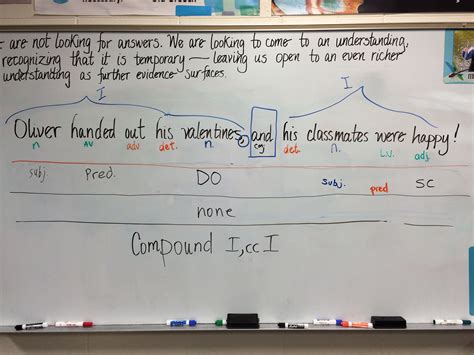 are not looking for answers. We are looking to come to an understanding,
recognizing that it is temporary — leaving us open to an even richer
understanding as further evidence surfaces.
I I
Oliver handed out his valentines, and his classmates were happy!
n av adv det. n. cc det. n. L.v. adj
subj. pred. DO subj. pred SC
none
Compound I,cc I